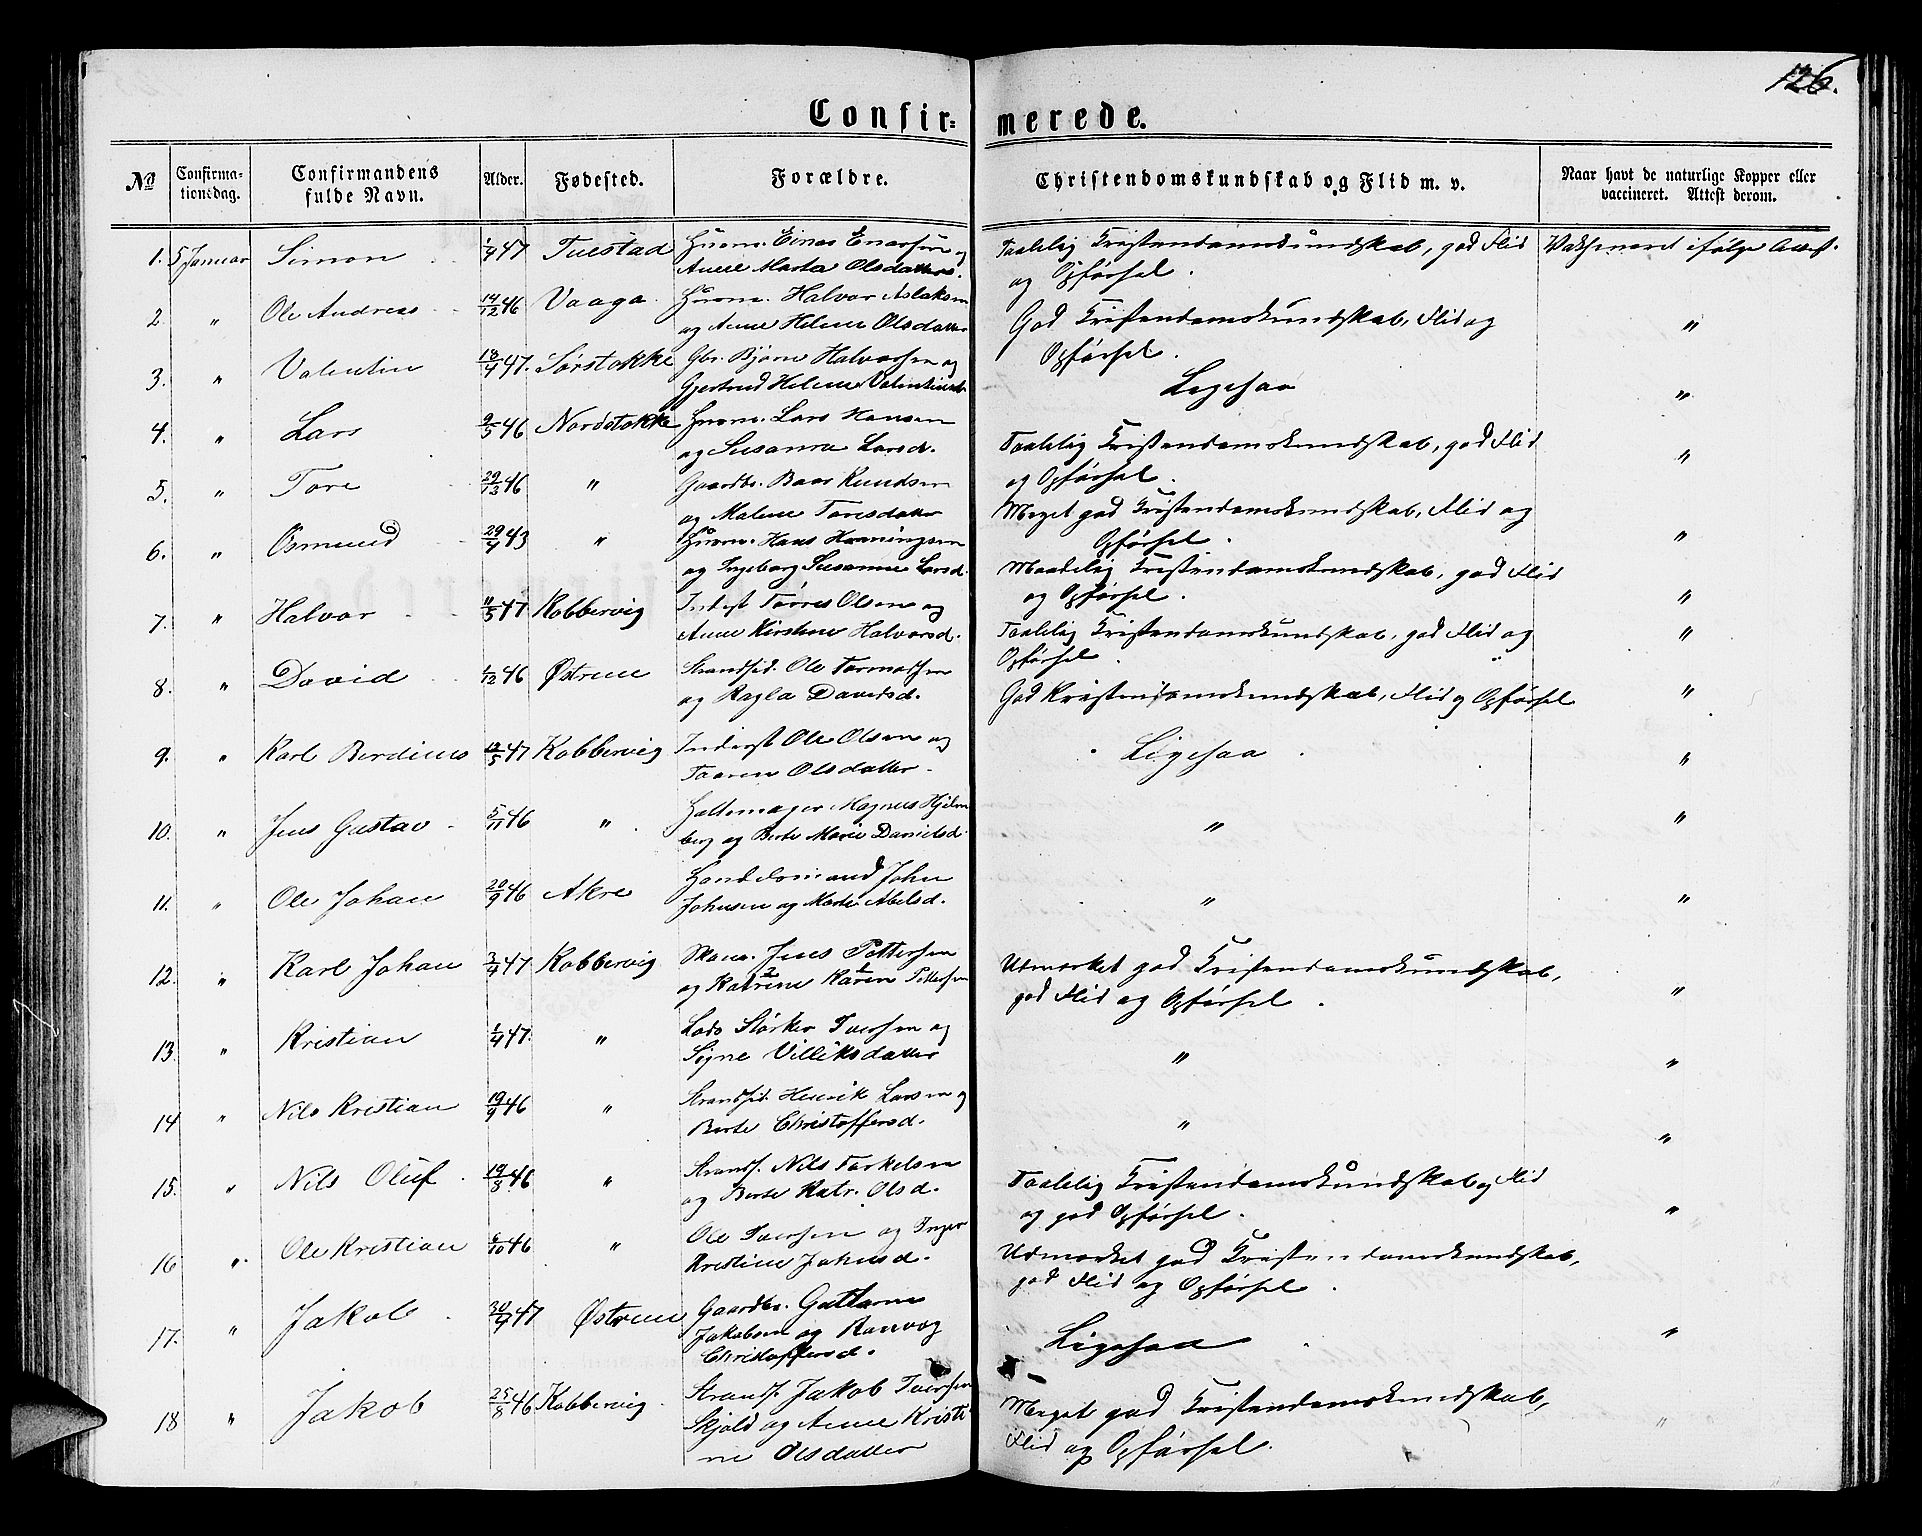 126.
Confir- merede.
No Confirma-tionsdag. Confirmandens fulde Navn. Alder. Fødested. Forældre. Christendomskundskab og Flid m. v. Naar havt de naturlige Kopper eller vaccineret. Attest derom.
1. 5 Januar Simon 1/4 47 Tuestad Husm. Einar Enarsen og Taalelig Kristendomskundskab, god Flid Vaksineret ifølge Attest.
Anne Marta Olsdatter. og Opførsel.
2. " Ole Andreas 14/12 46 Vaaga Husm. Halvor Aslaksen God Kristendomskundskab, Flid og "
og Anne Helene Olsdatter Opførsel.
3. " Valentin 18/4 47. Sørstokke Gbr. Bjørn Halvorsen og Ligesaa "
Gjertrud Helene Valentinsd.
4. " Lars 9/5 46 Nordstokke Husm. Lars Hansen Taalelig Kristendomskundskab, god Flid "
og Susanna Larsd. og Opførsel.
5. " Tore 29/12 46 " Gaardbr. Baar Knudsen Meget god Kristendomskundskab, Flid og "
og Malene Toresdatter Opførsel.
6. " Osmund 29/4 43 " Husm. Hans Henningsen Maadelig Kristendomskundskab, god Flid "
og Ingeborg Susanne Larsd. og Opførsel.
7. " Halvor 11/5 47 Kobbervig Inderst Tørres Olsen og Taalelig Kristendomskundskab, god Flid og "
Anne Kirstine Halvorsd. Opførsel.
8. " David 1/12 46 Østrem Strandsid. Ole Tormodsen God Kristendomskundskab, Flid og Opførsel "
og Ragla Davidsd.
9. " Karl Berdines 12/5 47 Kobbervig Inderst Ole Olsen og Ligesaa "
Taaren Olsdatter.
10. " Jens Gustav 5/11 46 " Hattemager Magnus Hjelm " "
berg og Berte Marie Danielsd.
11. " Ole Johan 20/9 46 Akre Handelsmand John " "
Johnsen og Marte Abelsd.
12. " Karl Johan 3/4 47 Kobbervig Jens Pettersen Udmærket god Kristendomskundskab, "
og Katrine Karen Pettersen god Flid og Opførsel.
13. " Kristian 1/4 47. " Lods Størker Iversen og " "
Signe Villiksdatter
14 " Nils Kristian 19/9 46 " Strandsid. Henrik Larsen og " "
Berte Christoffersd.
15. " Nils Oluf 19/8 46 " Strands. Nils Torkelsen Taalelig Kristendomskundskab og Flid "
og Berte Katr. Olsd. og god Opførsel.
16 " Ole Kristian 6/10 46 " Ole Iversen og Inger Udmærket god Kristendomskundskab,
Kristine Johnsd. god Flid og Opførsel.
17. " Jakob 30/4 47 Østrem Gaardbr. Guttorm Ligesaa "
Jakobsen og Ranvog
Christoffersd.
18 " Jakob 25/8 46 Kobbervig Strands. Jakob Iversen Meget god Kristendomskundskab, "
Skjold og Anne Kristi Flid og Opførsel.
ne Olsdatter